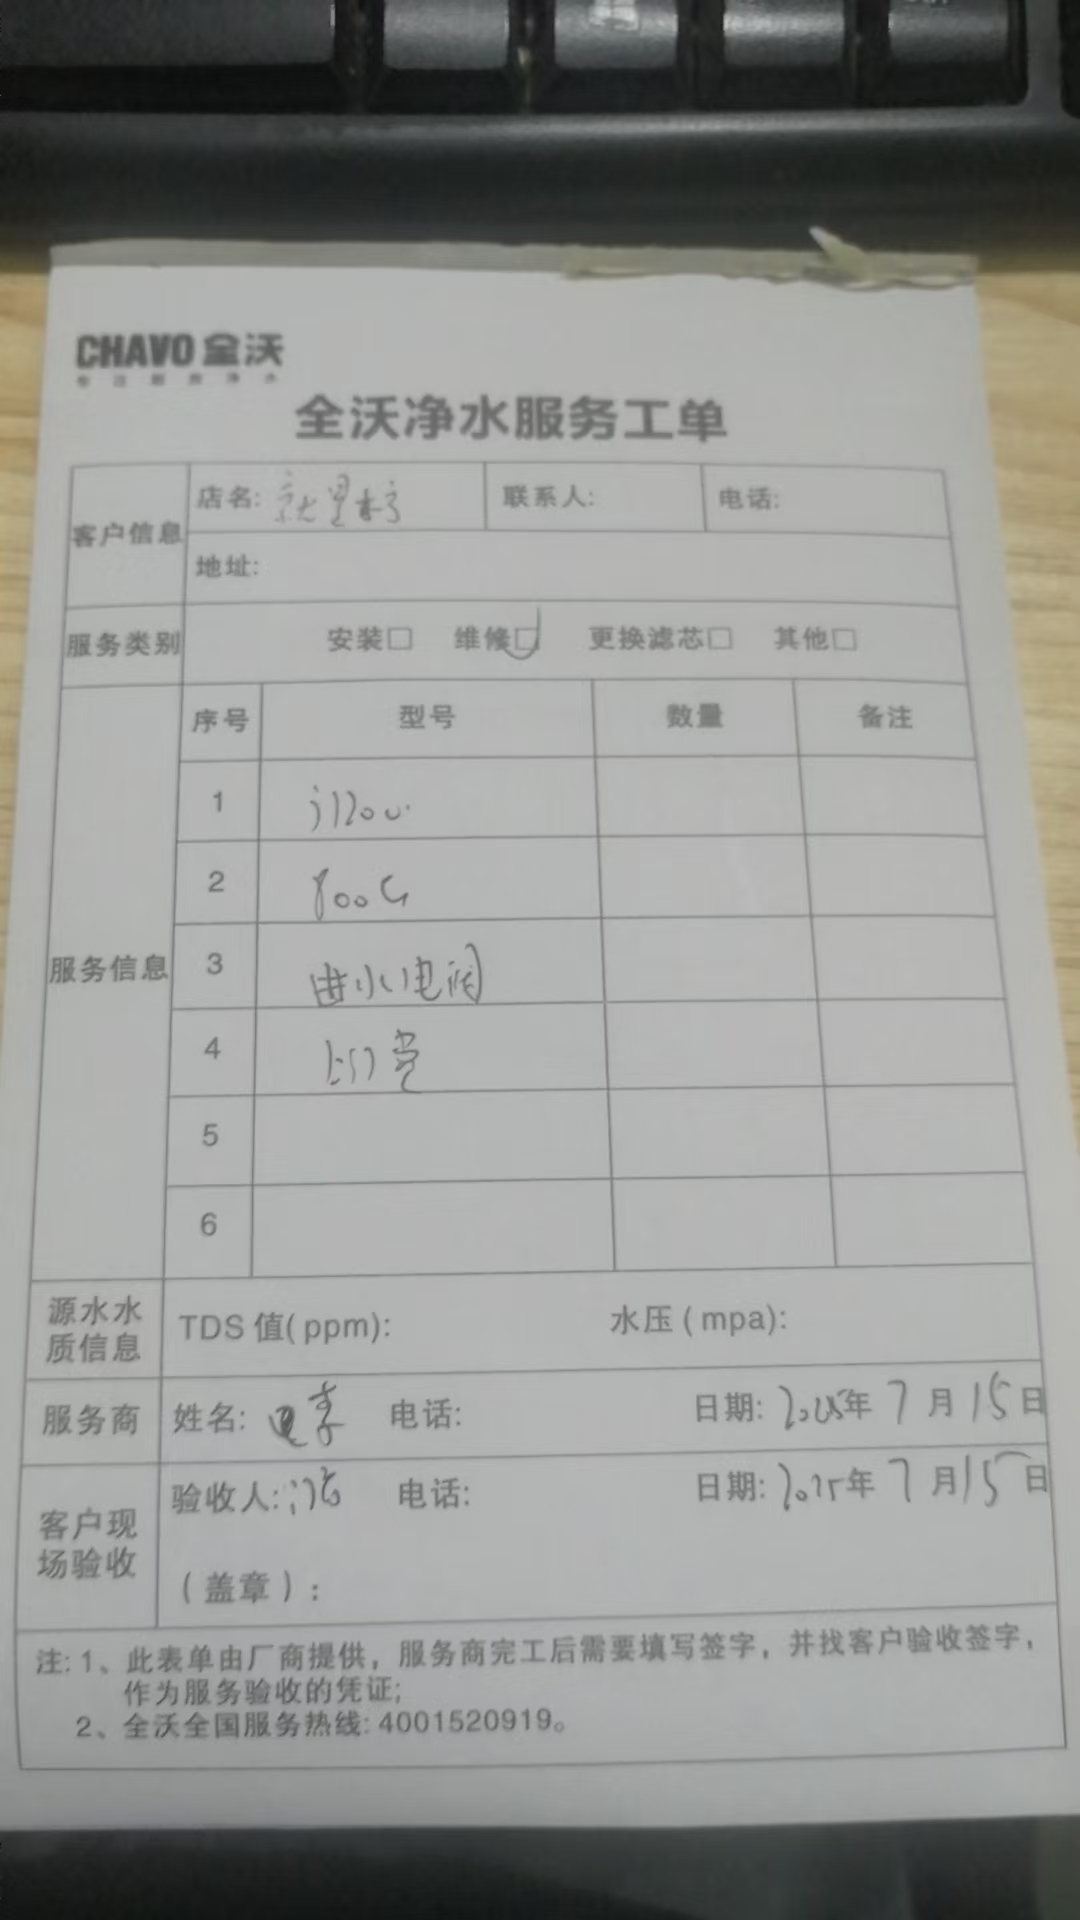 CHAVO 全沃
专注厨房净水
全沃净水服务工单
客户信息
店名: 就里
联系人:
电话:
地址:
服务类别
安装□ 维修□ 更换滤芯□ 其他□
服务信息
序号 型号 数量 备注
1
2 800G
3 进水电阀
4 上门
5
6
源水水质信息
TDS 值(ppm):
水压(mpa):
服务商
姓名: 李
电话:
日期: 2025年7月15日
客户现场验收
验收人:
电话:
日期: 2025年7月15日
(盖章):
注: 1、此表单由厂商提供，服务商完工后需要填写签字，并找客户验收签字，
作为服务验收的凭证;
2、全沃全国服务热线: 4001520919。